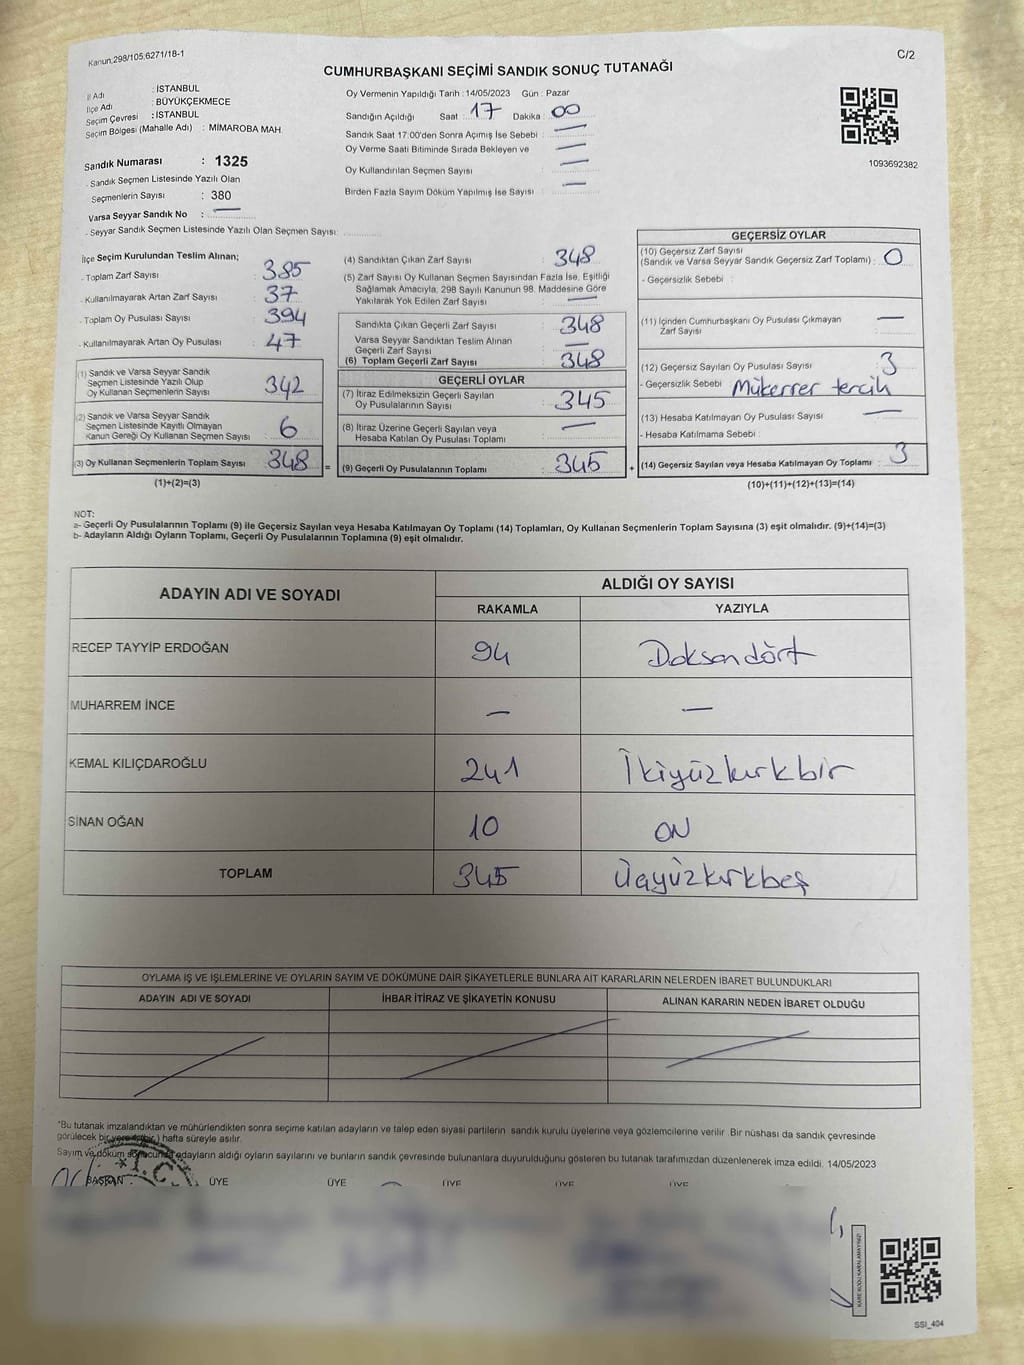 Kanun,298/105,6271/18-1
C/2
CUMHURBAŞKANI SEÇİMİ SANDIK SONUÇ TUTANAĞI
İl Adı : İSTANBUL
İlçe Adı : BÜYÜKÇEKMECE
Seçim Çevresi : İSTANBUL
Seçim Bölgesi (Mahalle Adı) : MİMAROBA MAH.
Sandık Numarası : 1325
- Sandık Seçmen Listesinde Yazılı Olan
Seçmenlerin Sayısı : 380
Varsa Seyyar Sandık No : —
- Seyyar Sandık Seçmen Listesinde Yazılı Olan Seçmen Sayısı:
Oy Vermenin Yapıldığı Tarih :14/05/2023 Gün : Pazar
Sandığın Açıldığı Saat : 17 Dakika : 00
Sandık Saat 17:00'den Sonra Açımış İse Sebebi : —
Oy Verme Saati Bitiminde Sırada Bekleyen ve —
Oy Kullandırılan Seçmen Sayısı : —
Birden Fazla Sayım Döküm Yapılmış İse Sayısı : —
1093692382
İlçe Seçim Kurulundan Teslim Alınan;
- Toplam Zarf Sayısı : 385
- Kullanılmayarak Artan Zarf Sayısı : 37
- Toplam Oy Pusulası Sayısı : 394
- Kullanılmayarak Artan Oy Pusulası : 47
(1) Sandık ve Varsa Seyyar Sandık
Seçmen Listesinde Yazılı Olup
Oy Kullanan Seçmenlerin Sayısı : 342
(2) Sandık ve Varsa Seyyar Sandık
Seçmen Listesinde Kayıtlı Olmayan
Kanun Gereği Oy Kullanan Seçmen Sayısı : 6
(3) Oy Kullanan Seçmenlerin Toplam Sayısı : 348 =
(1)+(2)=(3)
(4) Sandıktan Çıkan Zarf Sayısı : 348
(5) Zarf Sayısı Oy Kullanan Seçmen Sayısından Fazla İse, Eşitliği
Sağlamak Amacıyla, 298 Sayılı Kanunun 98. Maddesine Göre
Yakılarak Yok Edilen Zarf Sayısı : —
Sandıkta Çıkan Geçerli Zarf Sayısı : 348
Varsa Seyyar Sandıktan Teslim Alınan
Geçerli Zarf Sayısı : —
(6) Toplam Geçerli Zarf Sayısı : 348
GEÇERLİ OYLAR
(7) İtiraz Edilmeksizin Geçerli Sayılan
Oy Pusulalarının Sayısı : 345
(8) İtiraz Üzerine Geçerli Sayılan veya
Hesaba Katılan Oy Pusulası Toplamı : —
(9) Geçerli Oy Pusulalarının Toplamı : 345 +
GEÇERSİZ OYLAR
(10) Geçersiz Zarf Sayısı
(Sandık ve Varsa Seyyar Sandık Geçersiz Zarf Toplamı) : 0
- Geçersizlik Sebebi :
(11) İçinden Cumhurbaşkanı Oy Pusulası Çıkmayan
Zarf Sayısı : —
(12) Geçersiz Sayılan Oy Pusulası Sayısı : 3
- Geçersizlik Sebebi : Mükerrer tercih
(13) Hesaba Katılmayan Oy Pusulası Sayısı : —
- Hesaba Katılmama Sebebi :
(14) Geçersiz Sayılan veya Hesaba Katılmayan Oy Toplamı : 3
(10)+(11)+(12)+(13)=(14)
NOT:
a- Geçerli Oy Pusulalarının Toplamı (9) ile Geçersiz Sayılan veya Hesaba Katılmayan Oy Toplamı (14) Toplamları, Oy Kullanan Seçmenlerin Toplam Sayısına (3) eşit olmalıdır. (9)+(14)=(3)
b- Adayların Aldığı Oyların Toplamı, Geçerli Oy Pusulalarının Toplamına (9) eşit olmalıdır.
ADAYIN ADI VE SOYADI
ALDIĞI OY SAYISI
RAKAMLA YAZIYLA
RECEP TAYYİP ERDOĞAN 94 Doksan dört
MUHARREM İNCE — —
KEMAL KILIÇDAROĞLU 241 İkiyüzkırkbir
SİNAN OĞAN 10 ON
TOPLAM 345 Üçyüzkırkbeş
OYLAMA İŞ VE İŞLEMLERİNE VE OYLARIN SAYIM VE DÖKÜMÜNE DAİR ŞİKAYETLERLE BUNLARA AİT KARARLARIN NELERDEN İBARET BULUNDUKLARI
ADAYIN ADI VE SOYADI İHBAR İTİRAZ VE ŞİKAYETİN KONUSU ALINAN KARARIN NEDEN İBARET OLDUĞU
*Bu tutanak imzalandıktan ve mühürlendikten sonra seçime katılan adayların ve talep eden siyasi partilerin sandık kurulu üyelerine veya gözlemcilerine verilir .Bir nüshası da sandık çevresinde
görülecek bir yere (bir) hafta süreyle asılır.
Sayım ve döküm sonucunda adayların aldığı oyların sayılarını ve bunların sandık çevresinde bulunanlara duyurulduğunu gösteren bu tutanak tarafımızdan düzenlenerek imza edildi. 14/05/2023
T.C.
BAŞKAN ÜYE ÜYE ÜYE ÜYE ÜYE
KARE KODU KARALAMAYINIZ!
SSI_404